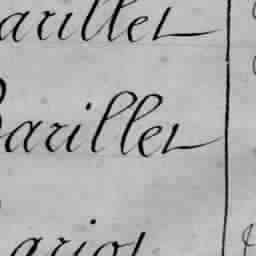 arillet
Barillet
ariot